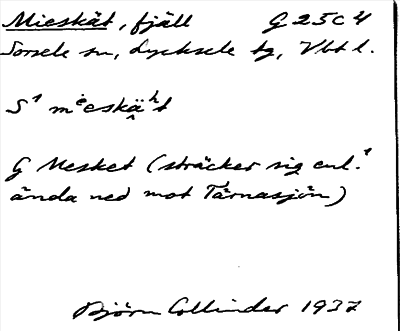 Mieskät, fjäll G 25C4
Sorsele sn, Lycksele tg, Vbtl.
S¹ mⁱeskä̭ʰt
G Mesket (sträcker sig enl.¹
ända ned mot Tärnasjön)
Björn Collinder 1937